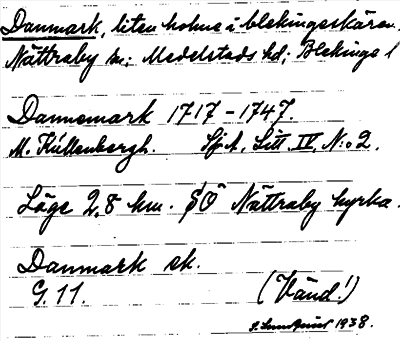 Danmark, liten holme i blekingeskären.
Nättraby sn; Medelstads hd; Blekinge l
Dannemark 1717-1747.
M. Kullenbergh. Sjk A, Litt. IV, N:o 2.
Läge 2,8 km. SO Nättraby kyrka.
Danmark sk.
G. 11. (Vänd!)
1938.